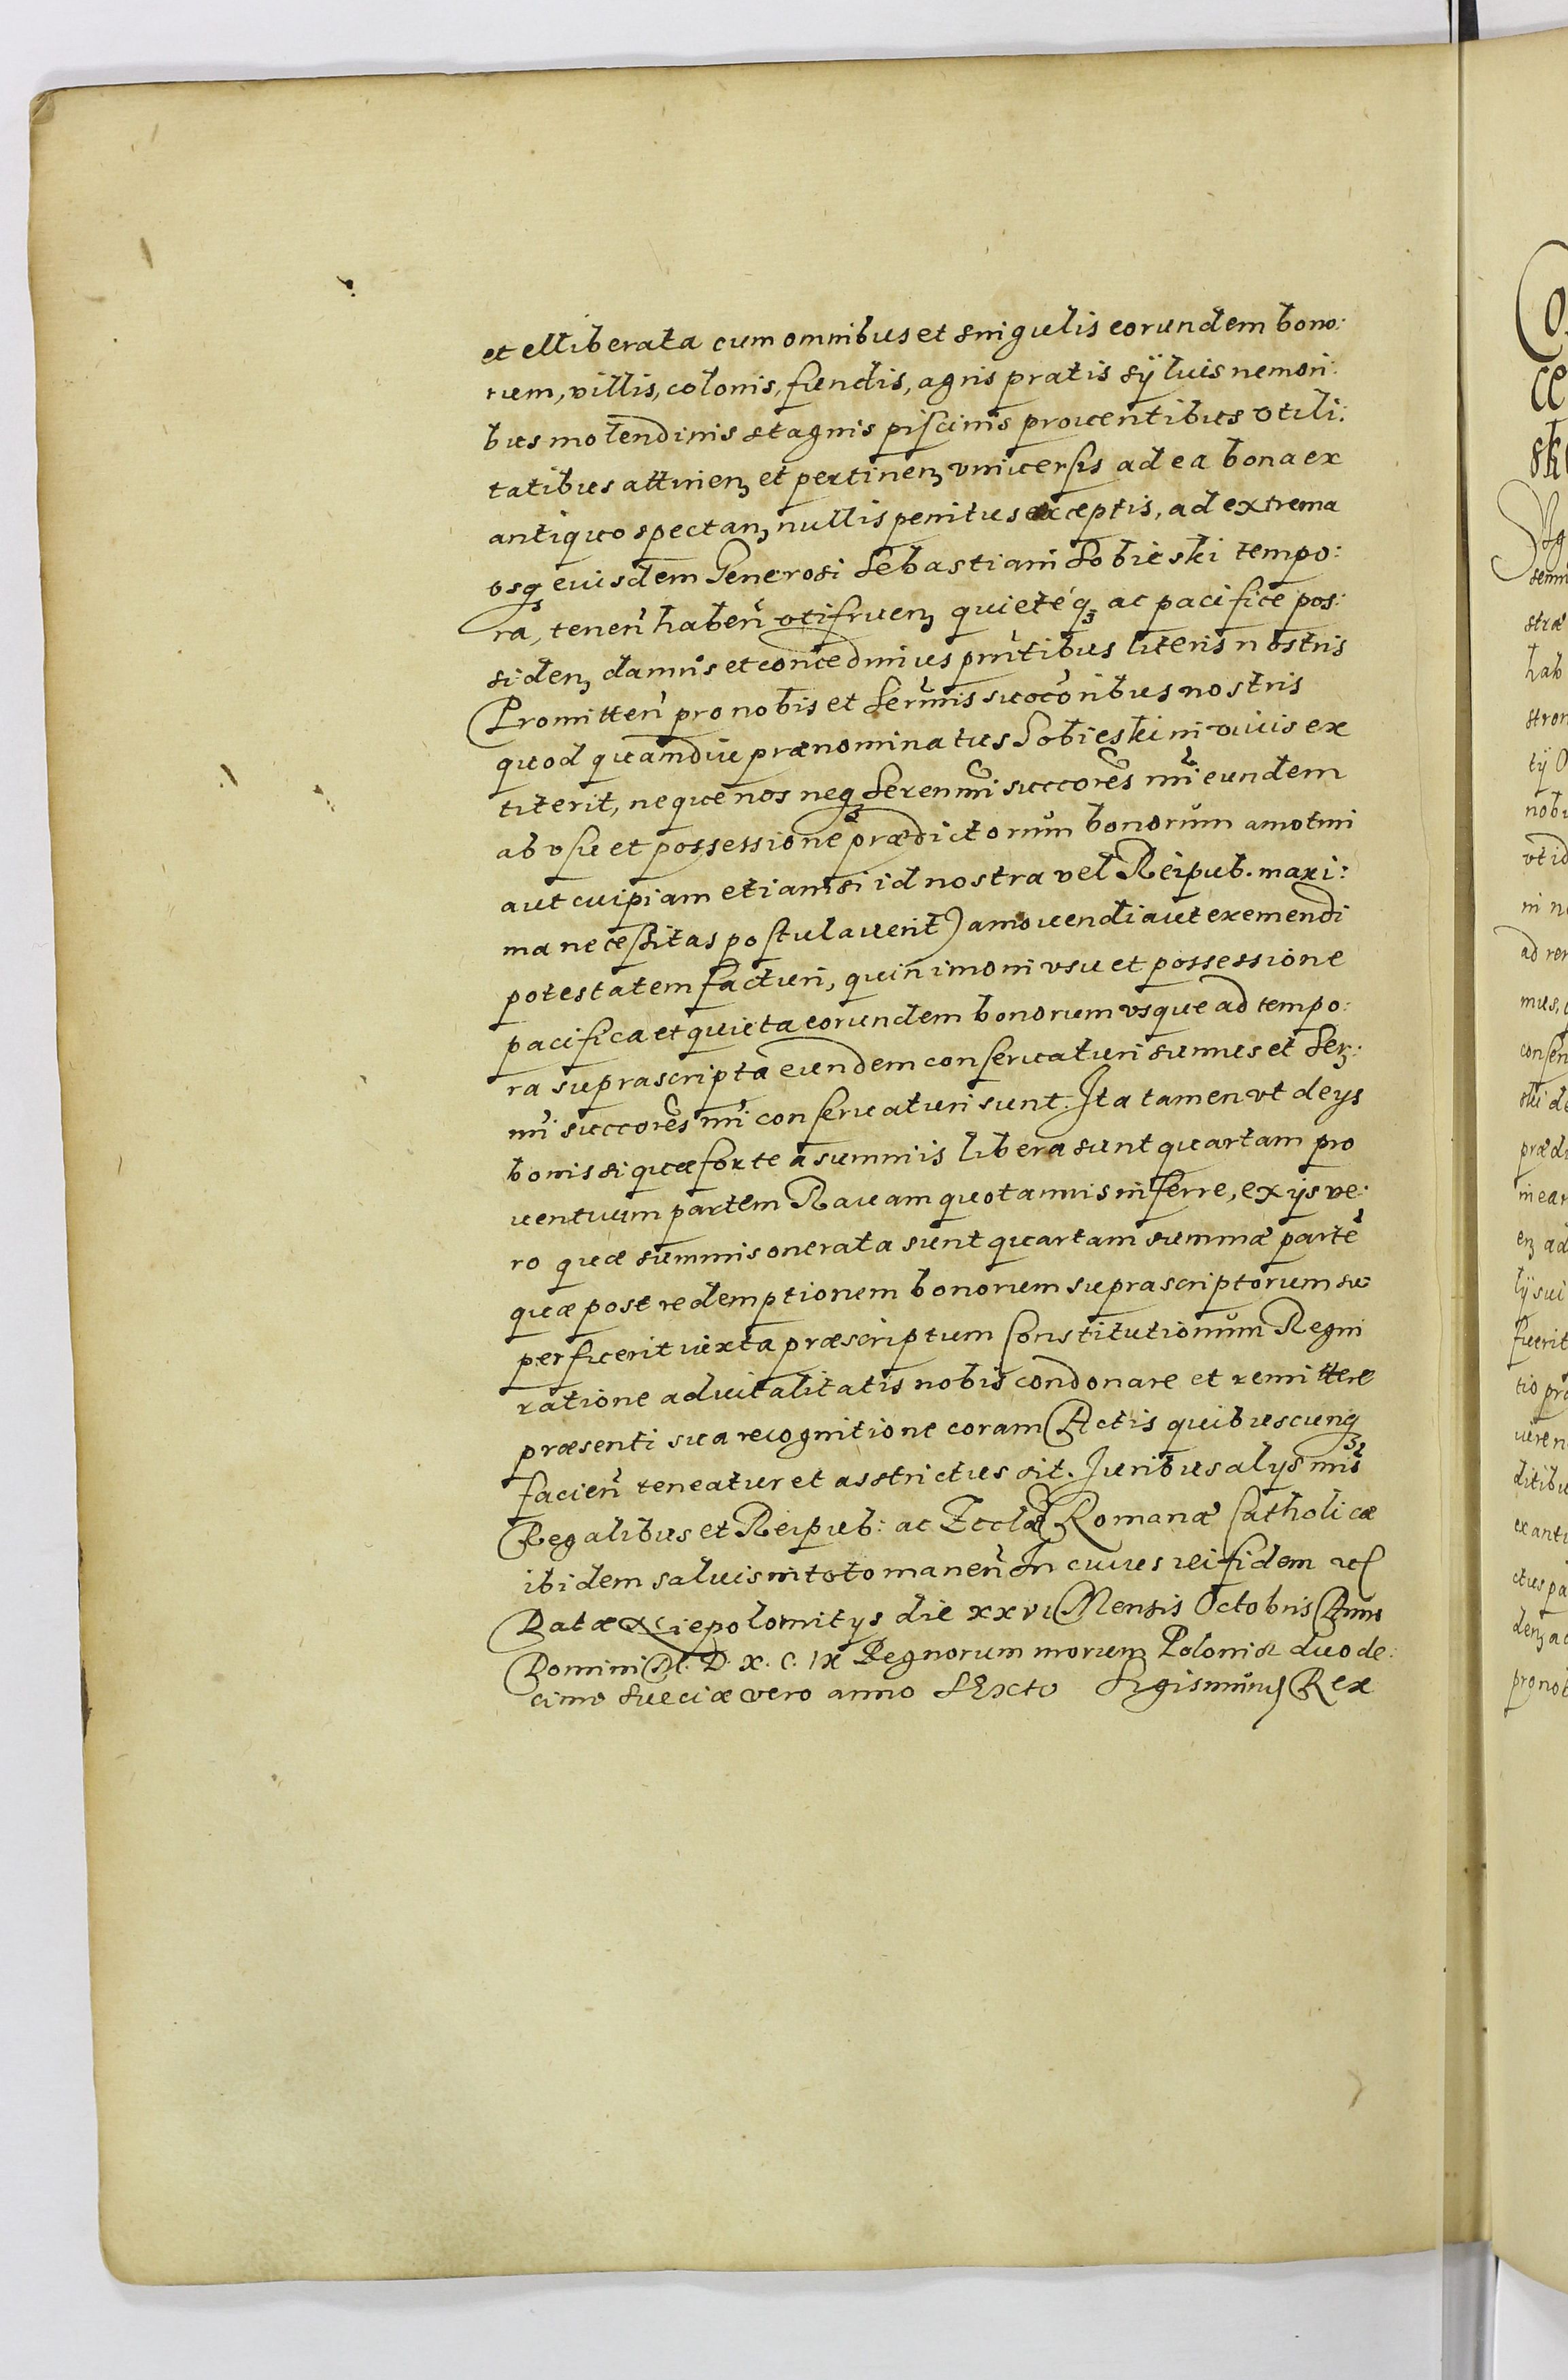 et elliberata cum omnibus et singulis eorundem bono:
rum, villis, colonis, fundis, agris pratis syluis nemori:
bus molendinis stagnis piscinis prouentibus vtili:
tatibus attinenȝ et pertinenȝ vniuersis ad ea bona ex
antiquo spectanȝ nullis penitus exceptis, ad extrema
vsqȝ euisdem Generosi Sebastiani Sobieski tempo:
ra, tenen̄ haben̄ vtifruenȝ quieteqȝ ac pacifice pos:
sidenȝ damus et concedimus pn̄tibus literis nostris
Promitten̄ pro nobis et Serm̄is succōribus nostris
quod quamdiu prænominatus Sobieski in viuis ex
titerit, neque nos neqȝ Serenm̄i succores nr̄i eundem
ab vsu et possessione prædictorum bonorum amoturi
aut cuipiam etiamsi id nostra vel Reipub. maxi:
ma necessitas postulauerit) amouendi aut exemendi
potestatem facturi, quin imo in vsu et possessione
pacifica et quieta eorundem bonorum vsque ad tempo:
ra suprascripta eundem conseruaturi sumus et Serȝ:
mi succores nr̄i conseruaturi sunt. Ita tamen vt de ys
bonis si quæ forte a summis libera sunt quartam pro
uentuum partem Rauam quotannis inferre, ex ijs ve:
ro quæ summis onerata sunt quartam summæ partē
quæ post redemptionem bonorum suprascriptorum su
perfuerit iuxta præscriptum Constitutionum Regni
ratione aduitalitatis nobis condonare et remittere
præsenti sua recognitione coram Actis quibuscunqȝ
facien̄ teneatur et asstrictus sit. Juribus alys nr̄is
Regalibus et Reipub: ac Eccl̄æ Romanæ Catholicæ
ibidem saluis in toto manen̄ In cuius rei fidem
Datæ Niepolomitys die xxvi Mensis Octobris Anno
Domini M. D. X. C. IX Regnorum nrorum Poloniæ duode:
cimo Sueciæ vero anno sexto Sigismūnus Rex